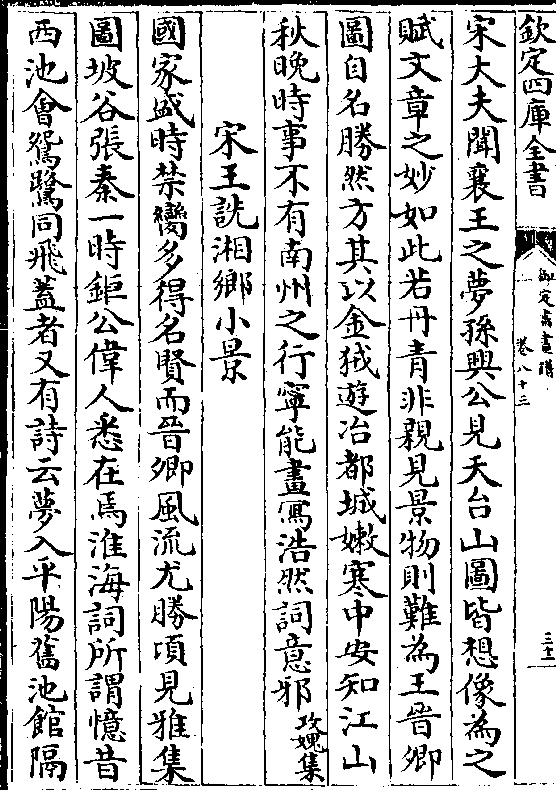 欽定四庫全書
御定書畫譜
卷八十三
三十二
宋大夫聞襄王之夢孫興公見天台山圖皆想像為之
賦文章之妙如此若丹青非親見景物則難為王晉卿
圖自名勝然方其以金狨遊冶都城嫩寒中安知江山
秋晚時事不有南州之行寧能畫寫浩然詞意邪攻媿集
宋王詵湘鄉小景
國家盛時禁臠多得名賢而晉卿風流尤勝頃見雅集
圖坡谷張秦一時鉅公偉人悉在焉淮海詞所謂憶昔
西池會鴛鷺同飛蓋者又有詩云夢入平陽舊池館隔